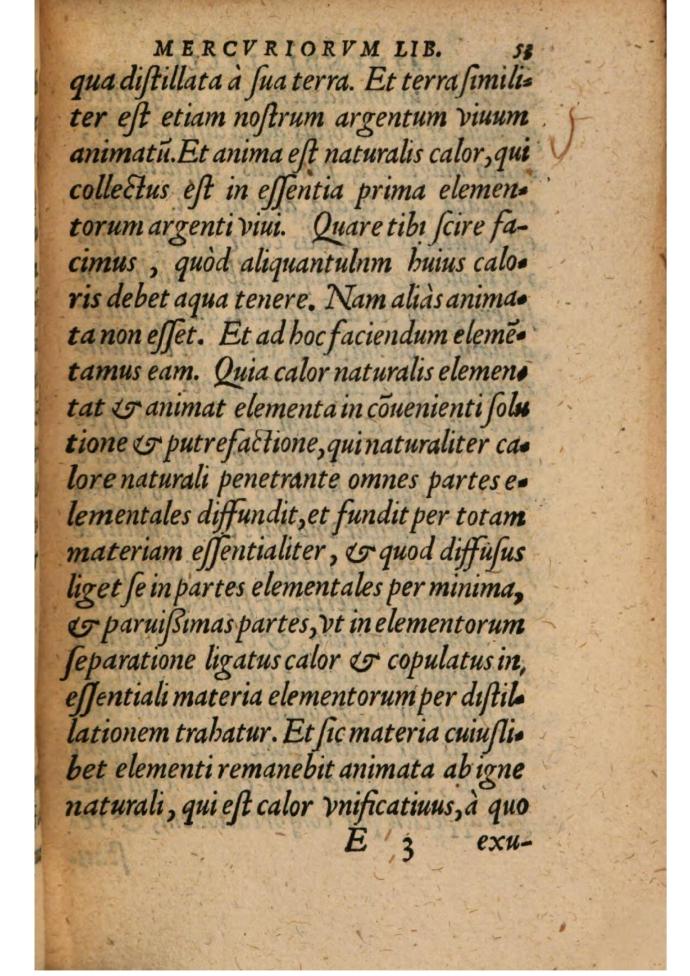 MERCVRIORVM LIB. 53
qua distillata à sua terra. Et terra simili-
ter est etiam nostrum argentum viuum
animatū. Et anima est naturalis calor, qui
collectus est in essentia prima elemen-
torum argenti viui. Quare tibi scire fa-
cimus, quòd aliquantulnm huius calo-
ris debet aqua tenere. Nam aliàs anima-
ta non esset. Et ad hoc faciendum elemē-
tamus eam. Quia calor naturalis elemen-
tat & animat elementa in cōuenienti solu
tione & putrefactione, qui naturaliter ca-
lore naturali penetrante omnes partes e-
lementales diffundit, et fundit per totam
materiam essentialiter, & quod diffusus
liget se in partes elementales per minima,
& paruißimas partes, vt in elementorum
separatione ligatus calor & copulatus in,
essentiali materia elementorum per distil-
lationem trahatur. Et sic materia cuiusli-
bet elementi remanebit animata ab igne
naturali, qui est calor vnificatiuus, à quo
E 3 exu-